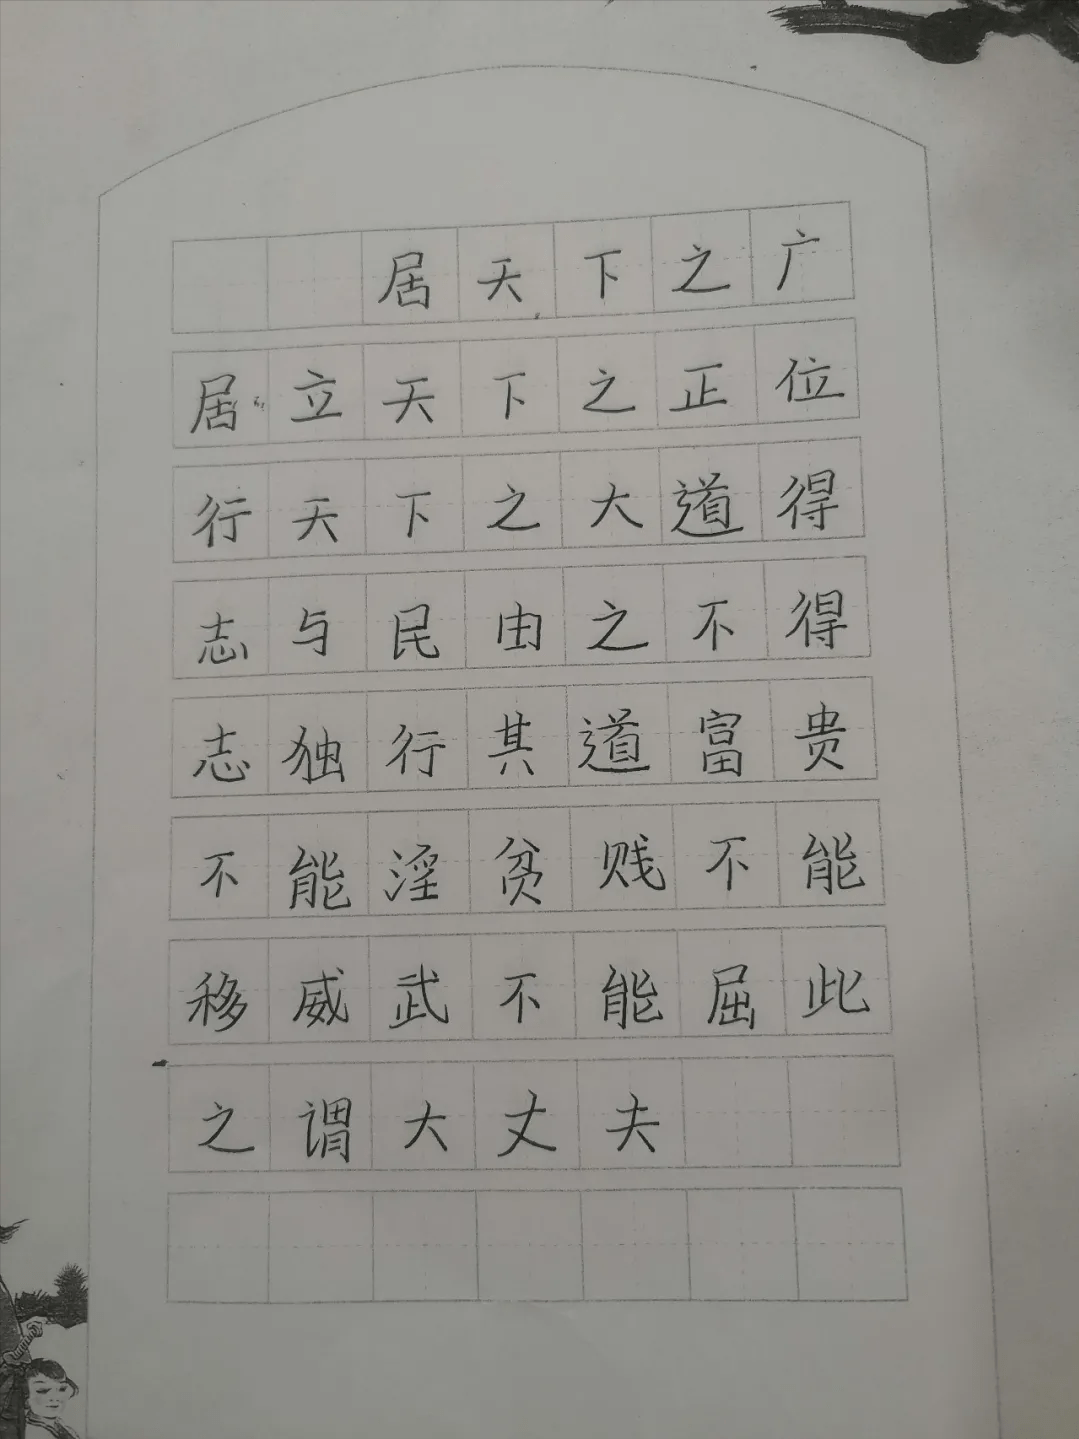 居天下之广
居立天下之正位
行天下之大道得
志与民由之不得
志独行其道富贵
不能淫贫贱不能
移威武不能屈此
之谓大丈夫